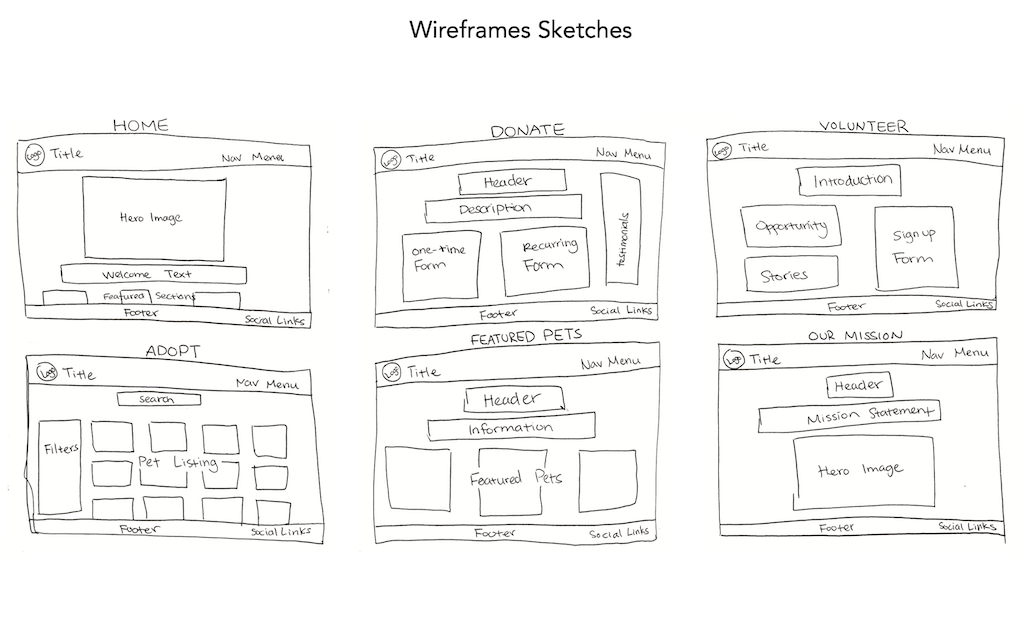 Wireframes Sketches
HOME
Logo Title Nav Menu
Hero Image
Welcome Text
Featured Sections
Footer Social Links
DONATE
Logo Title Nav Menu
Header
Description
one-time
Form
Recurring
Form
testimonials
Footer Social Links
VOLUNTEER
Logo Title Nav Menu
Introduction
Opportunity
Stories
Sign up
Form
Footer Social Links
ADOPT
Logo Title Nav Menu
Search
Filters
Pet Listing
Footer Social Links
FEATURED PETS
Logo Title Nav Menu
Header
Information
Featured Pets
Footer Social Links
OUR MISSION
Logo Title Nav Menu
Header
Mission Statement
Hero Image
Footer Social Links